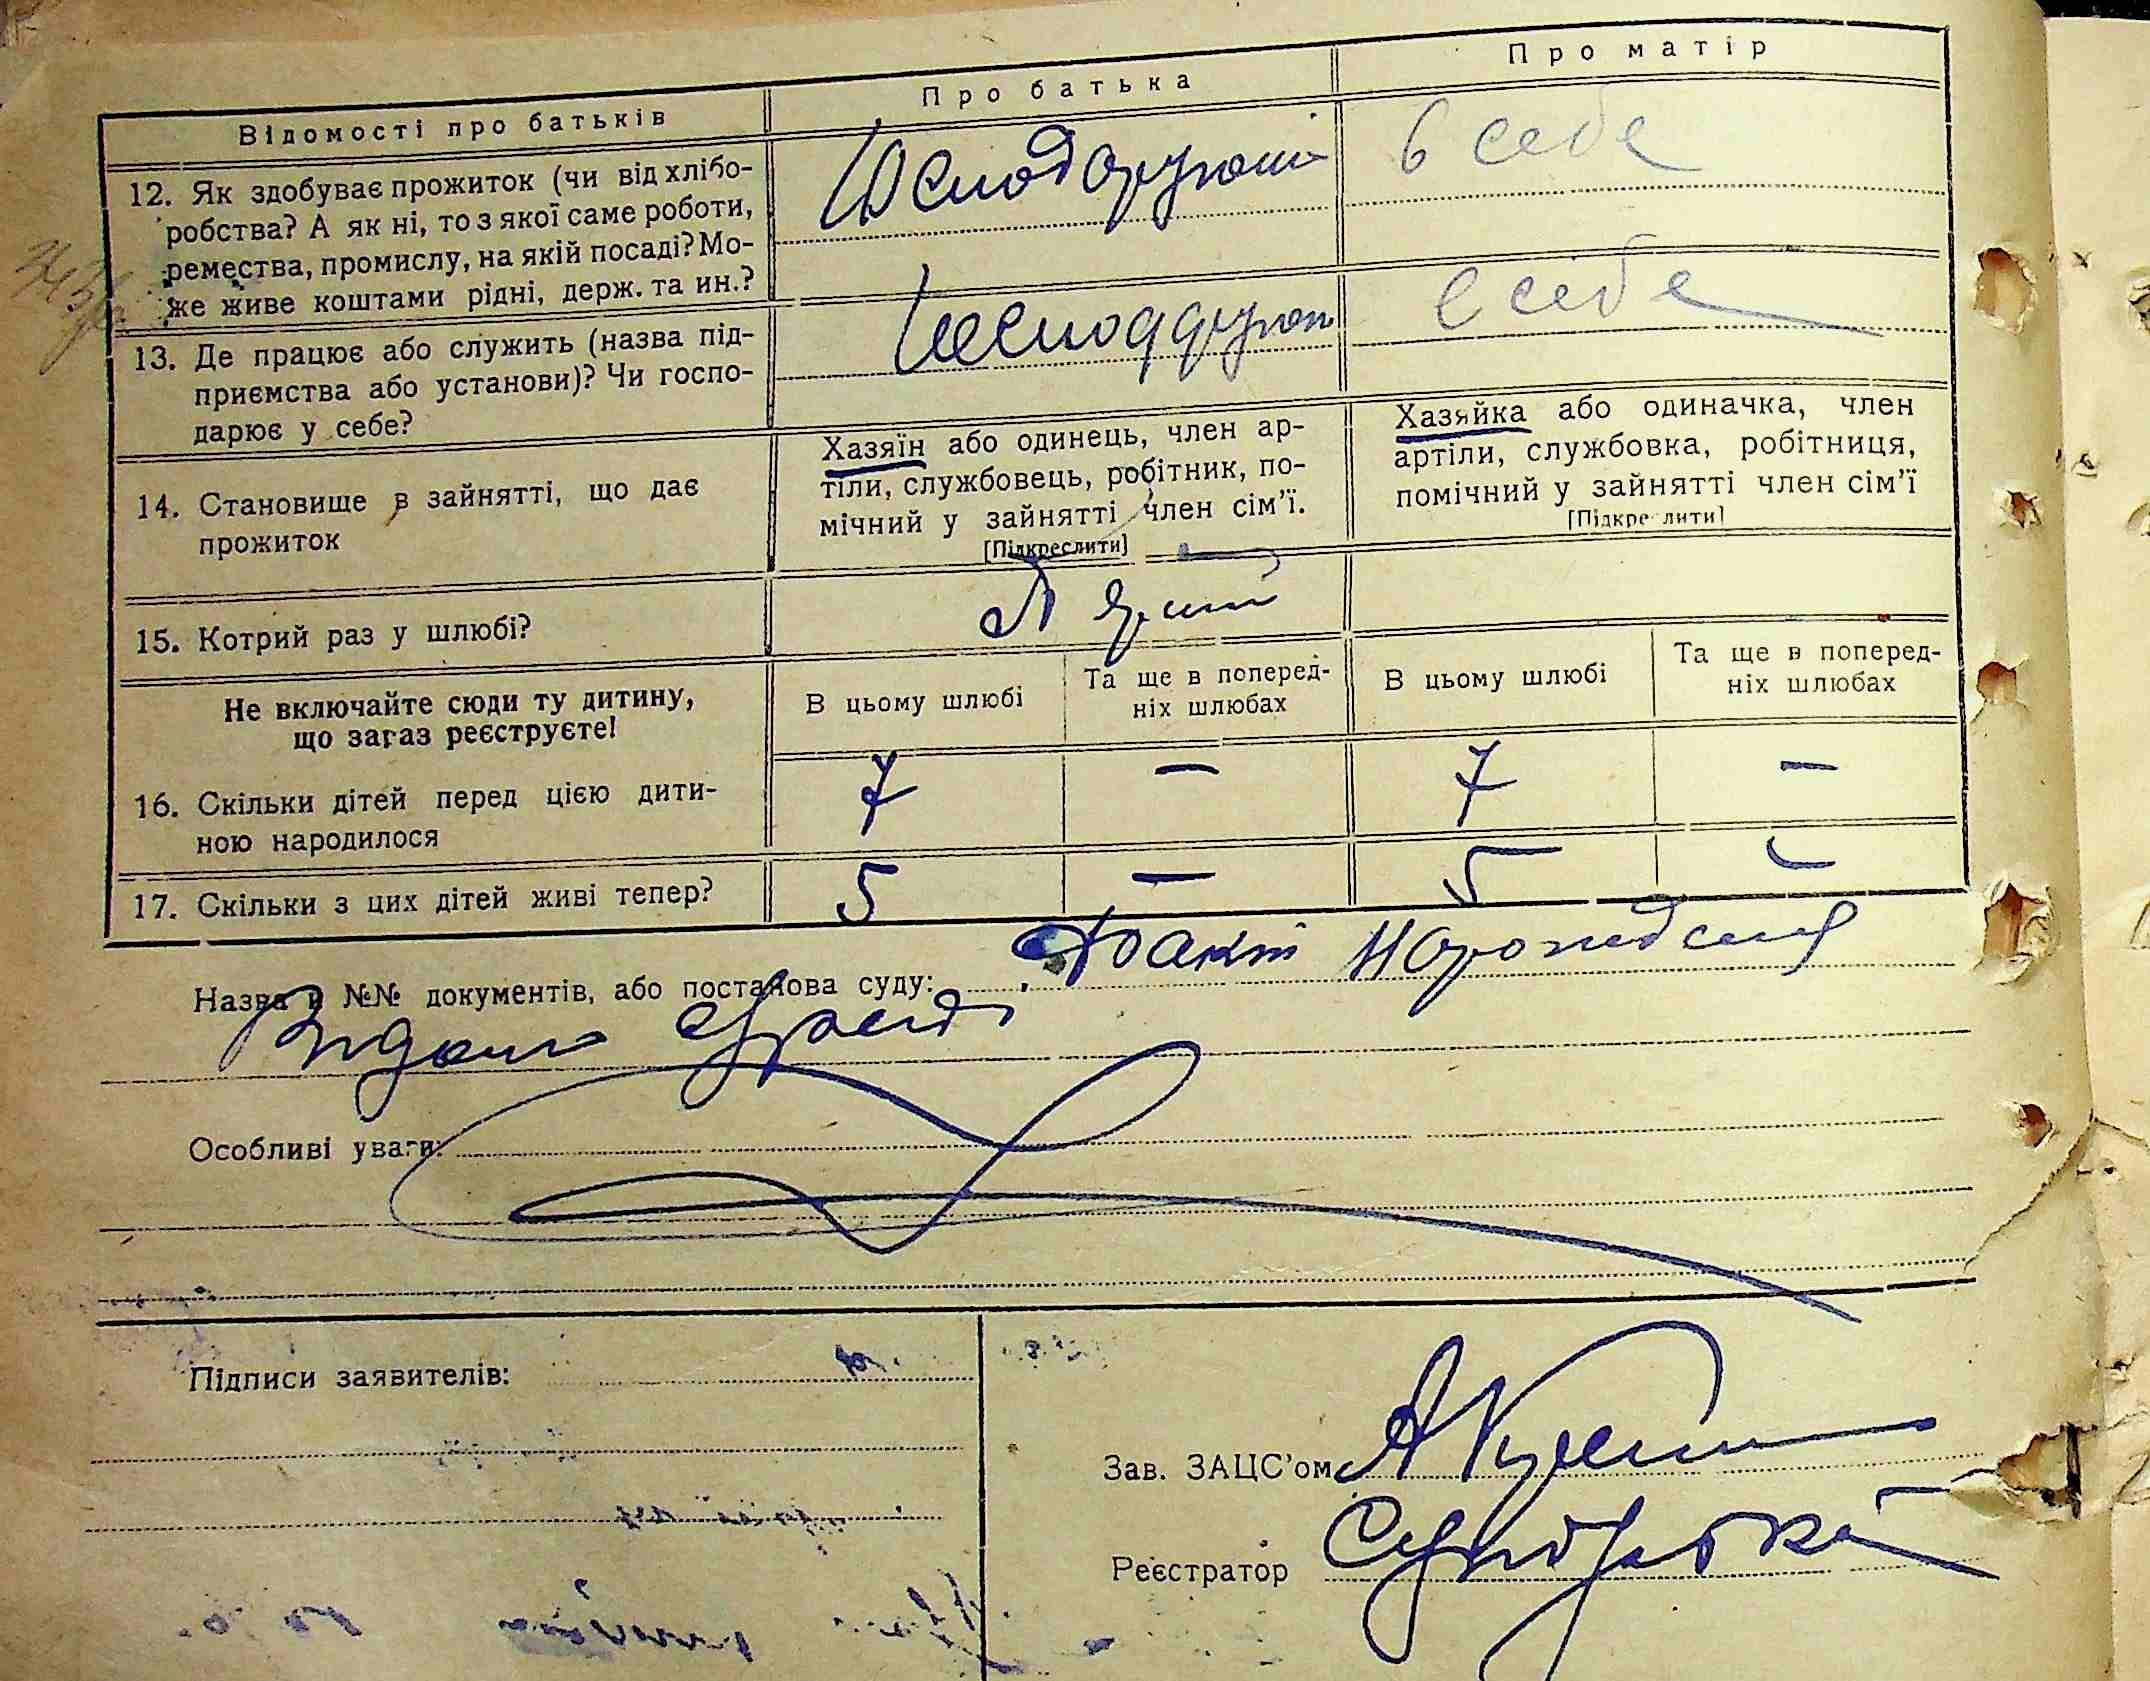 Відомості про батьків
Про батька
Про матір
12. Як здобуває прожиток (чи від хлібо-
робства? А як ні, то з якої саме роботи,
ремества, промислу, на якій посаді? Мо-
же живе коштами рідні, держ. та ин.?
в себе
13. Де працює або служить (назва під-
приємства або установи)? Чи госпо-
дарює у себе?
в себе
14. Становище в зайнятті, що дає
прожиток
Хазяїн або одинець, член ар-
тіли, службовець, робітник, по-
мічний у зайнятті член сім'ї.
[Підкреслити]
Хазяйка або одиначка, член
артіли, службовка, робітниця,
помічний у зайнятті член сім'ї
[Підкреслити]
15. Котрий раз у шлюбі?
Не включайте сюди ту дитину,
що зараз реєструєте!
В цьому шлюбі
Та ще в поперед-
ніх шлюбах
В цьому шлюбі
Та ще в поперед-
ніх шлюбах
16. Скільки дітей перед цією дити-
ною народилося
7 — 7 —
17. Скільки з цих дітей живі тепер?
5 — 5 —
Назва и №№ документів, або постанова суду: Факт
Особливі уваги:
Підписи заявителів:
Зав. ЗАЦС'ом
Реєстратор